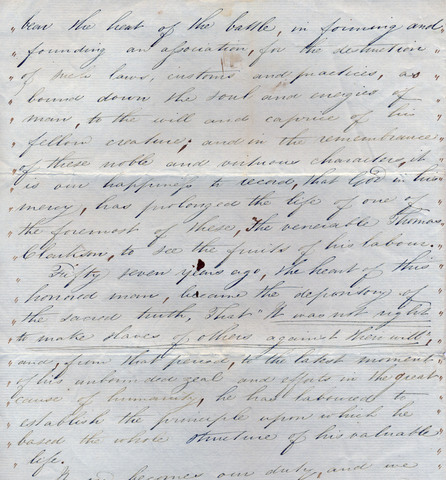 " bear the heat of the battle, in forming and
" founding an association, for the destruction "
" of such laws, customs and practices, as "
" bound down the soul and energies of "
" man, to the will and caprice of his "
" fellow creature; and in the remembrance "
" of these noble and virtuous characters, it "
" is our happiness to record, that God in his "
" mercy, has prolonged the life of one of "
" the foremost of these, the venerable Thomas
" Clarkson, to see the fruits of his labour. "
" Fifty seven years ago, the heart of this "
" honored man, became the depository of "
" the sacred truth, That "It was not right "
" to make slaves of others against there will", "
" and, from that period, to the latest moment "
" of his unbounded zeal and efforts in the great "
" cause of humanity, he has laboured to "
" establish the principle upon which he "
" based the whole structure of his valuable "
" life.
becomes our duty, and we